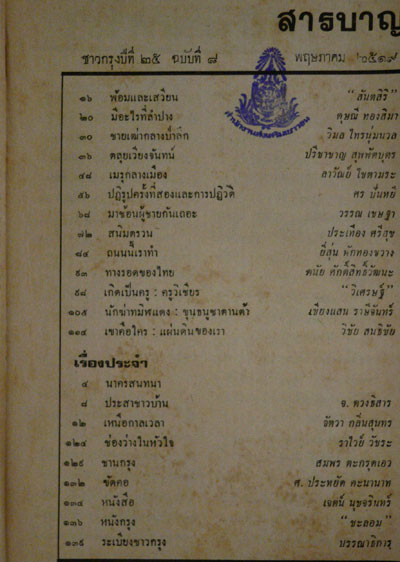 สารบาญ
ชาวกรุงปีที่ ๒๕ ฉบับที่ ๘ พฤษภาคม ๒๕๑๙
๑๖ พ้อมและเสวียน "สันตสิริ"
๒๐ มีอะไรที่ลำปาง ดุษณี ทองสิมา
๓๐ ชายเฒ่ากลางน้ำลึก วิมล ไทรนิ่มนวล
๓๖ ตลุยเวียงจันทน์ ปรีชาชาญ สุพพัตบุตร
๔๘ เมรุกลางเมือง ลาวัณย์ โชตามระ
๕๖ ปฏิรูปครั้งที่สองและการปฏิวัติ ศร ปั่นหยี
๖๘ มาซ้อนผู้ชายกันเถอะ วรรณ เชษฐา
๗๒ สนิมตรวน ประเทือง ศรีสุข
๘๔ ถนนนี้เราทำ ยี่สุ่น พักทองขวาง
๙๓ ทางรอดของไทย ดนัย ศักดิ์สิทธิ์วัฒนะ
๙๘ เกิดเป็นครู : ครูวิเชียร "วิเศรษฐ์"
๑๐๕ นักฆ่าทมิฬแดง : ขุนธนูชาตานต้ำ เชียงแสน ราษีจันทร์
๑๑๔ เขาคือใคร : แผ่นดินของเรา วิชัย สนธิชัย
เรื่องประจำ
๔ นาครสนทนา
๘ ประสาชาวบ้าน จ. ดวงธิสาร
๑๒ เหนือกาลเวลา จัตวา กลิ่นสุนทร
๑๒๔ ช่องว่างในหัวใจ ราไวย์ วัชระ
๑๒๙ ชานกรุง สมพร ตะกรุดเอว
๑๓๒ ขัดคอ ศ. ประหยัด คะนานาท
๑๓๔ หนังสือ เจตน์ นุชจรินทร์
๑๓๖ หนังกรุง "ชะลอม"
๑๓๙ ระเบียงชาวกรุง บรรณาธิการ